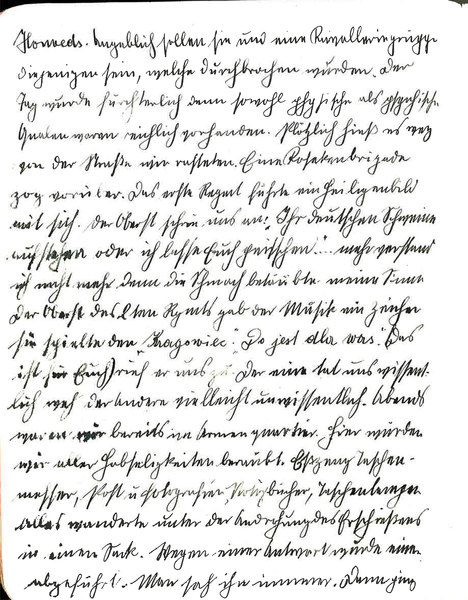 Honveds. Angeblich sollen sie und eine Kavalleriegruppe
diejenigen sein, welche durchbrochen wurden. Der
Tag wurde fürchterlich denn sowohl physische als psychische
Qualen waren reichlich vorhanden. Plötzlich hieß es weg
von der Straße wir rasteten. Eine Kosakenbrigade
zog vorüber. Das erste Regmt führte ein Heiligenbild
mit sich. Der Oberst schrie uns an: "Ihr deutschen Schweine
aufstehen oder ich lasse Euch peitschen"... mehr verstand
ich nicht mehr denn die Schmach betäubte meine Sinne
Der Oberst des 2ten Rgmts gab der Musik ein Zeichen
sie spielte den "Kragowiec". "To jest dla was." (Das
ist für Euch) rief er uns zu. Der eine tat uns wissent-
lich weh der Andere vielleicht unwissentlich. Abends
waren wir bereits im Armeequartier. Hier wurden
wir aller Habseligkeiten beraubt. Eßzeug Taschen-
messer, Post u Fotografien, Notizbücher, Taschenlampen
alles wanderte unter der Androhung des Erschießens
in einen Sack. Wegen einer Antwort wurde einer
abgeführt. Man sah ihn nimmer. Dann ging